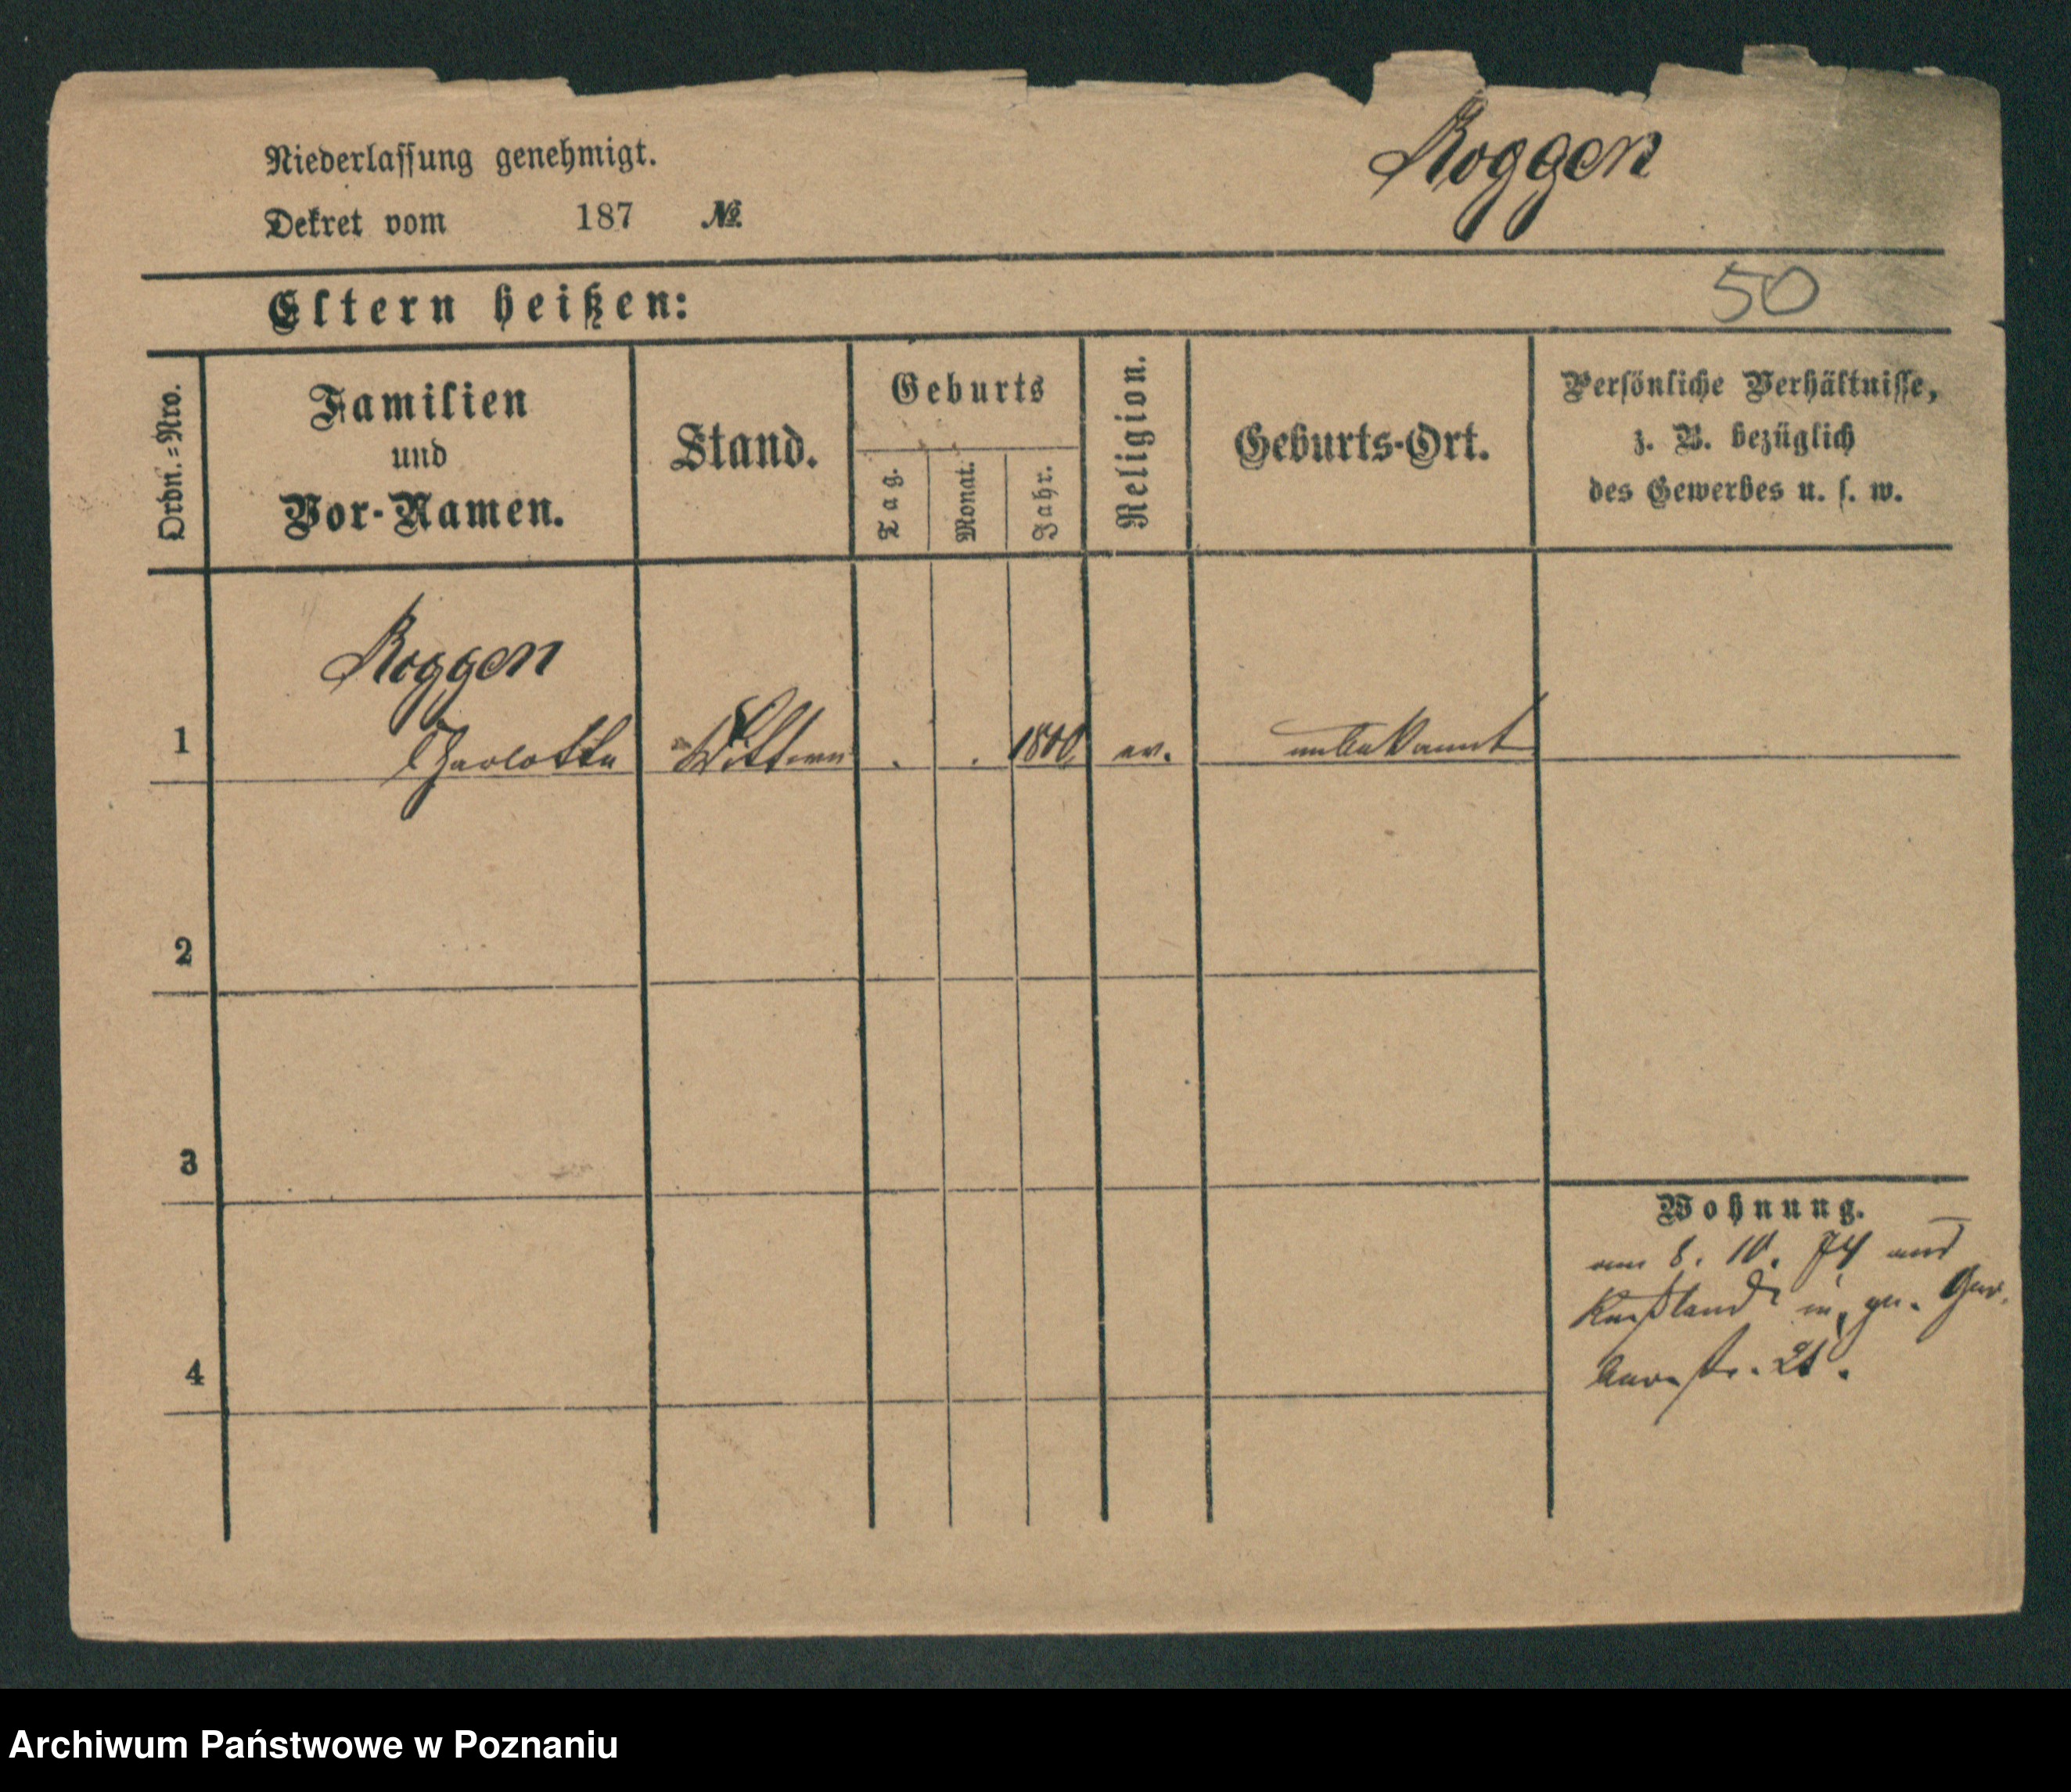 Niederlassung genehmigt.
Roggen
Dekret vom 187 №
Eltern heißen:
50
Ordn.-Nro.
Familien
und
Vor-Namen.
Stand.
Geburts
Tag.
Monat.
Jahr.
Religion.
Geburts-Ort.
Persönliche Verhältnisse,
z. B. bezüglich
des Gewerbes u. s. w.
Roggen
1 Charlotte . . 1800 ev. unbekannt
2
3
Wohnung.
am 8. 10. 74 aus
Rußland
4
str. 21.
Archiwum Państwowe w Poznaniu